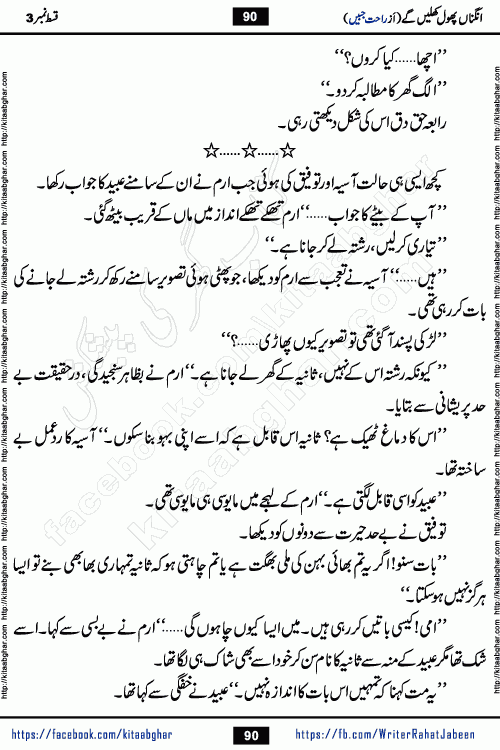 انگناں پھول کھلیں گے (از راحت جبیں)
90
قسط نمبر 3
’’اچھا......کیا کروں؟‘‘
’’الگ گھر کا مطالبہ کر دو۔‘‘
رابعہ حق دق اس کی شکل دیکھتی رہی۔
☆......☆......☆
کچھ ایسی ہی حالت آسیہ اور توفیق کی ہوئی جب ارم نے ان کے سامنے عبید کا جواب رکھا۔
’’آپ کے بیٹے کا جواب......‘‘ ارم تھکے تھکے انداز میں ماں کے قریب بیٹھ گئی۔
’’تیاری کر لیں، رشتہ لے کر جانا ہے۔‘‘
’’ہیں......‘‘ آسیہ نے تعجب سے ارم کو دیکھا، جو پھٹی ہوئی تصویر سامنے رکھ کر رشتہ لے جانے کی
بات کر رہی تھی۔
’’لڑکی پسند آ گئی تھی تو تصویر کیوں پھاڑی......؟‘‘
’’کیونکہ رشتہ اس کے نہیں، ثانیہ کے گھر لے جانا ہے۔‘‘ ارم نے بظاہر سنجیدگی، درحقیقت بے
حد پریشانی سے بتایا۔
’’اس کا دماغ ٹھیک ہے؟ ثانیہ اس قابل ہے کہ اسے اپنی بہو بنا سکوں۔‘‘ آسیہ کا ردعمل بے
ساختہ تھا۔
’’عبید کو اسی قابل لگتی ہے۔‘‘ ارم کے لہجے میں مایوسی ہی مایوسی تھی۔
توفیق نے بے حد حیرت سے دونوں کو دیکھا۔
’’بات سنو! اگر یہ تم بھائی بہن کی ملی بھگت ہے یا تم چاہتی ہو کہ ثانیہ تمہاری بھابھی بنے تو ایسا
ہرگز نہیں ہو سکتا۔‘‘
’’امی! کیسی باتیں کر رہی ہیں۔ میں ایسا کیوں چاہوں گی......‘‘ ارم نے بے بسی سے کہا۔ اسے
شک تھا مگر عبید کے منہ سے ثانیہ کا نام سن کر خود اسے بھی شاک ہی لگا تھا۔
’’یہ مت کہنا کہ تمہیں اس بات کا اندازہ نہیں۔‘‘ عبید نے خفگی سے کہا تھا۔
https://facebook.com/kitaabghar
90
https://fb.com/WriterRahatJabeen
http://kitaabghar.com
facebook.com/kitaabghar
کتاب گھر کی پیشکش